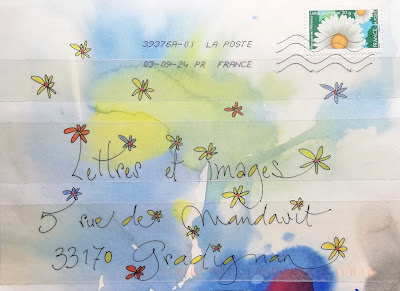 39376A-01 LA POSTE
03-09-24 PR FRANCE
Lettres et images
5 rue de Mandavit
33170 Gradignan